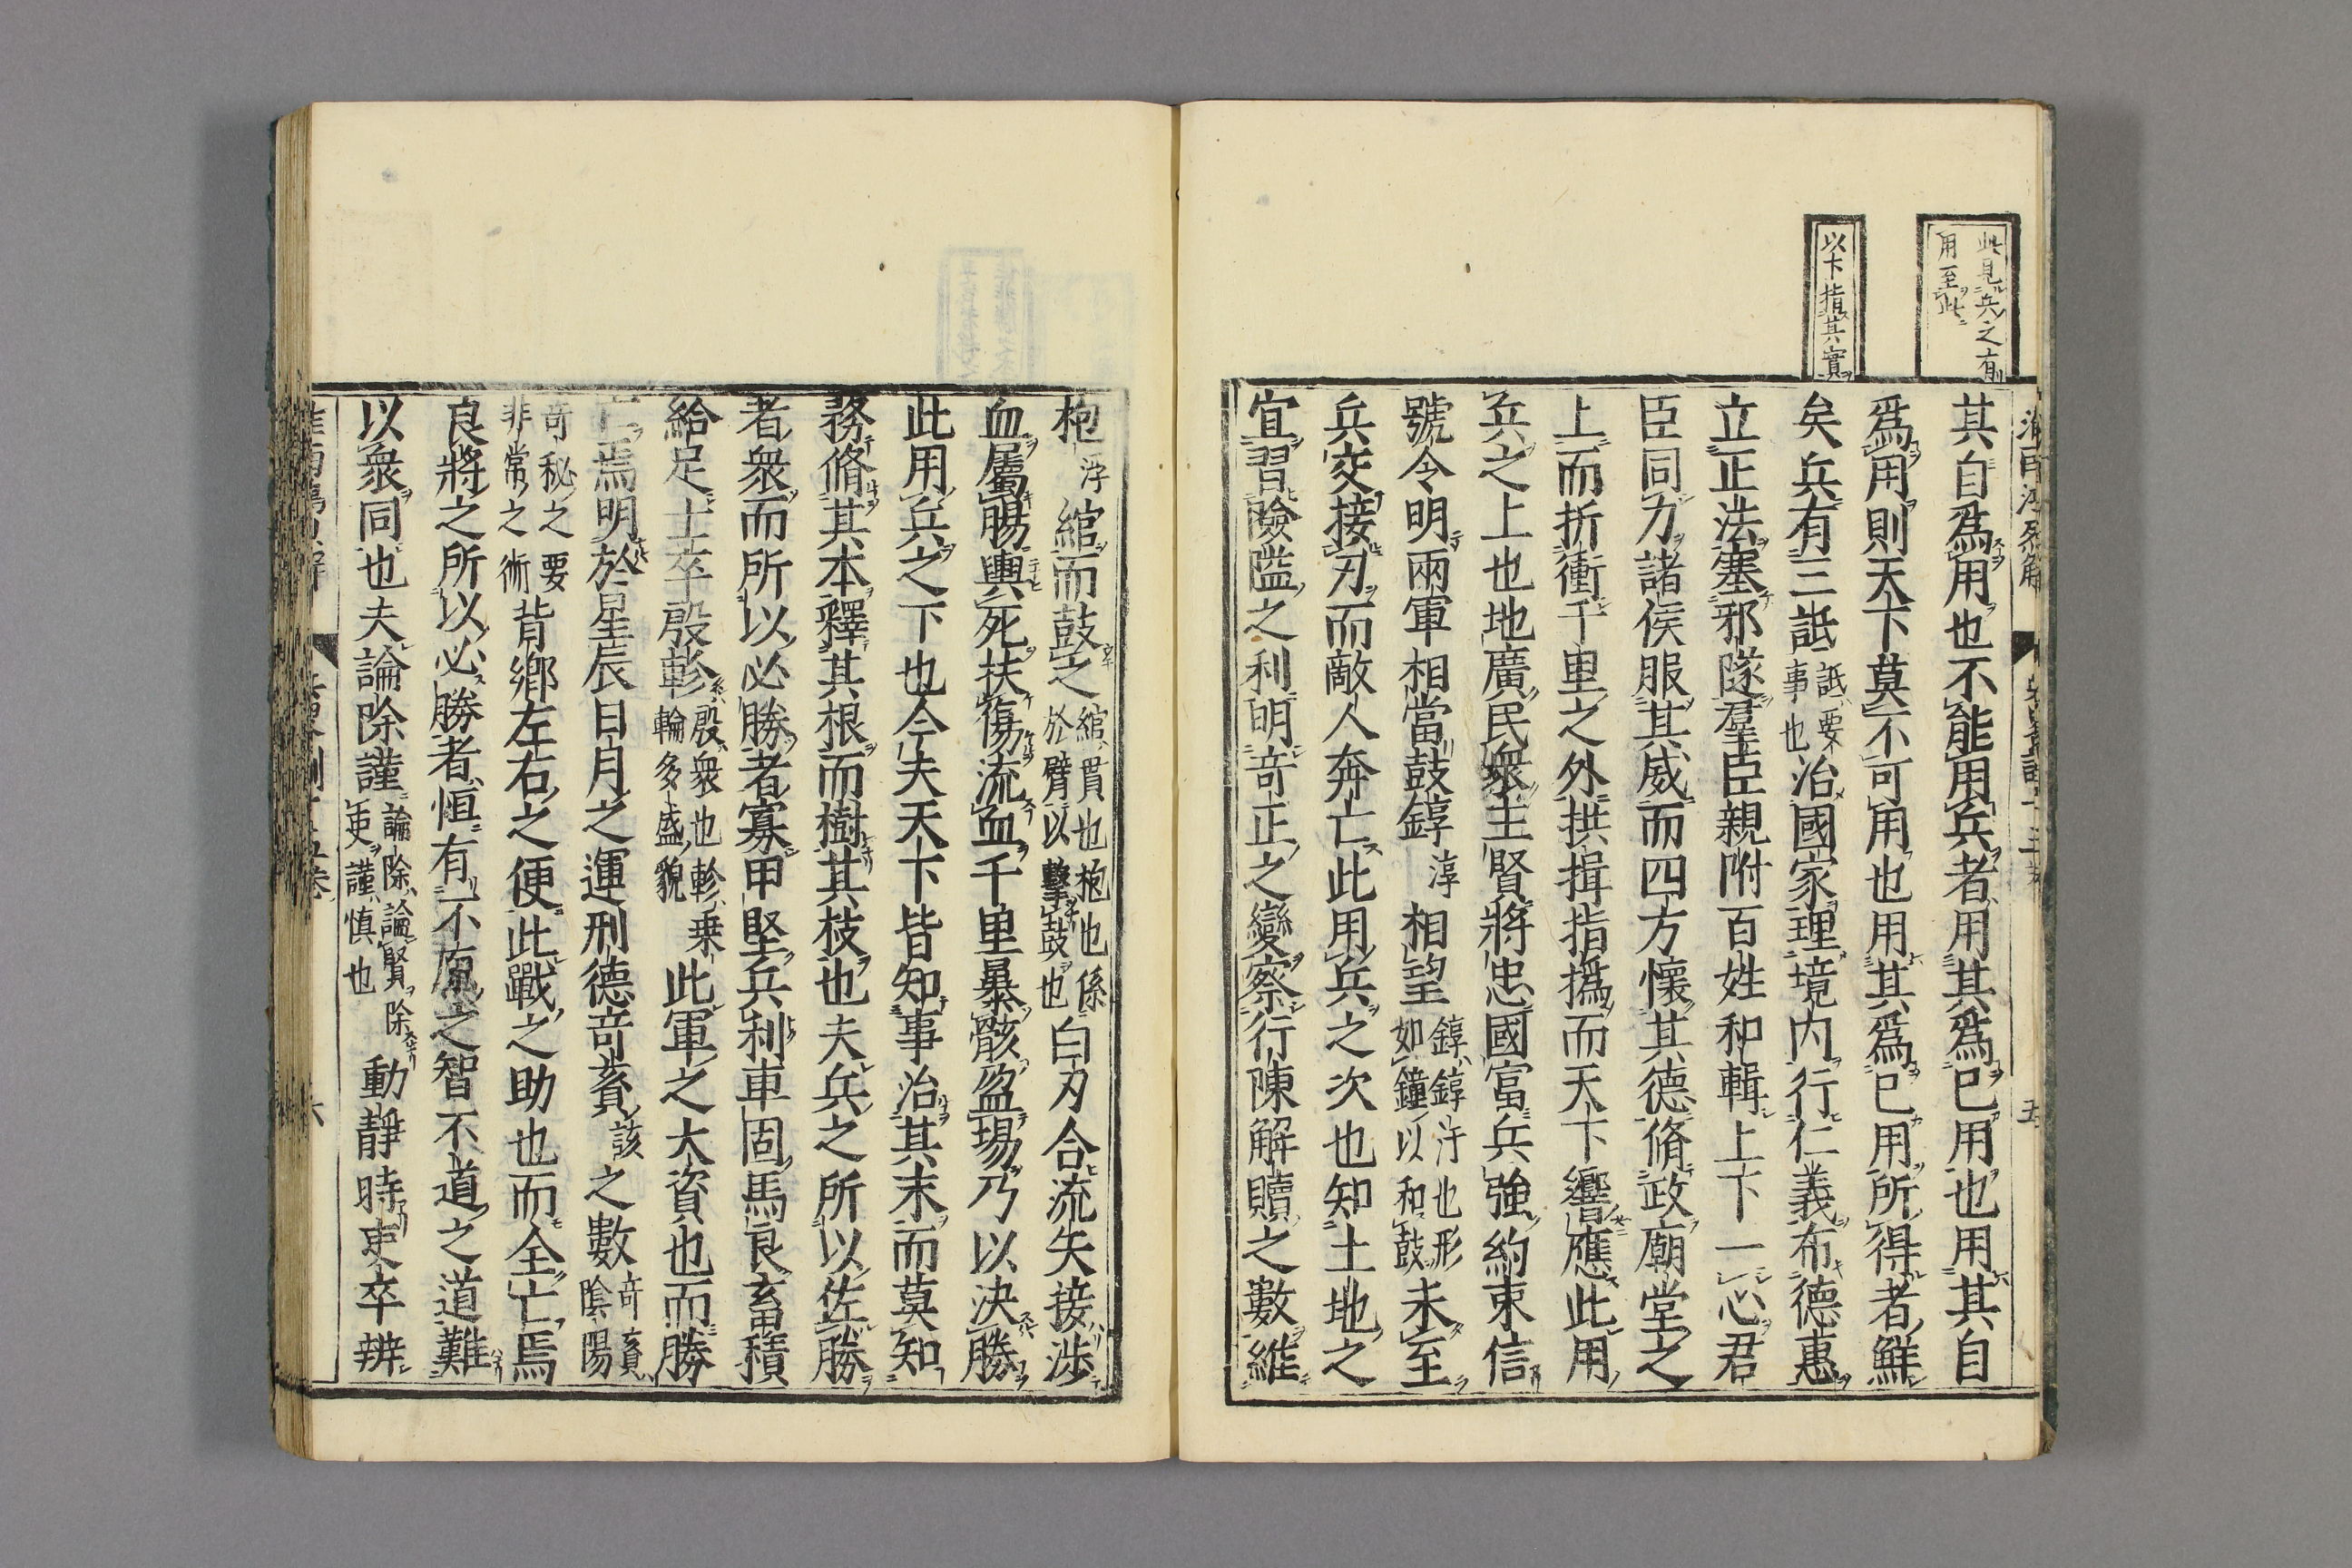 此見兵之有
用至此
以下指其實
其自爲用也不能用兵者用其爲己用也用其自
爲用則天下莫不可用也用其爲己用所得者鮮
矣兵有三詆詆要事也治國家理境内行仁義布德惠
立正法塞邪隧羣臣親附百姓和輯上下一心君
臣同力諸侯服其威而四方懷其德脩政廟堂之
上而折衝千里之外拱揖指撝而天下響應此用
兵之上也地廣民衆主賢將忠國富兵強約束信
號令明兩軍相當鼓錞淳相望錞錞汙也形如鐘以和鼓未至
兵交接刃而敵人奔亡此用兵之次也知土地之
宜習險隘之利明奇正之變察行陳解贖之數維
枹浮綰而鼓之綰貫也枹也係於臂以擊鼓也白刃合流矢接涉
血屬腸輿死扶傷流血千里暴骸盈場乃以決勝
此用兵之下也今夫天下皆知事治其末而莫知
務脩其本釋其根而樹其枝也夫兵之所以佐勝
者衆而所以必勝者寡甲堅兵利車固馬良畜積
給足士卒殷軫殷衆也軫乗輪多盛貌此軍之大資也而勝
亡焉明於星辰日月之運刑德奇賌該之數奇賌陰陽
奇秘之要非常之術背鄉左右之便此戰之助也而全亡焉
良將之所以必勝者恒有不原之智不道之道難
以衆同也夫論除謹論除論賢除吏謹慎也動靜時吏卒辨